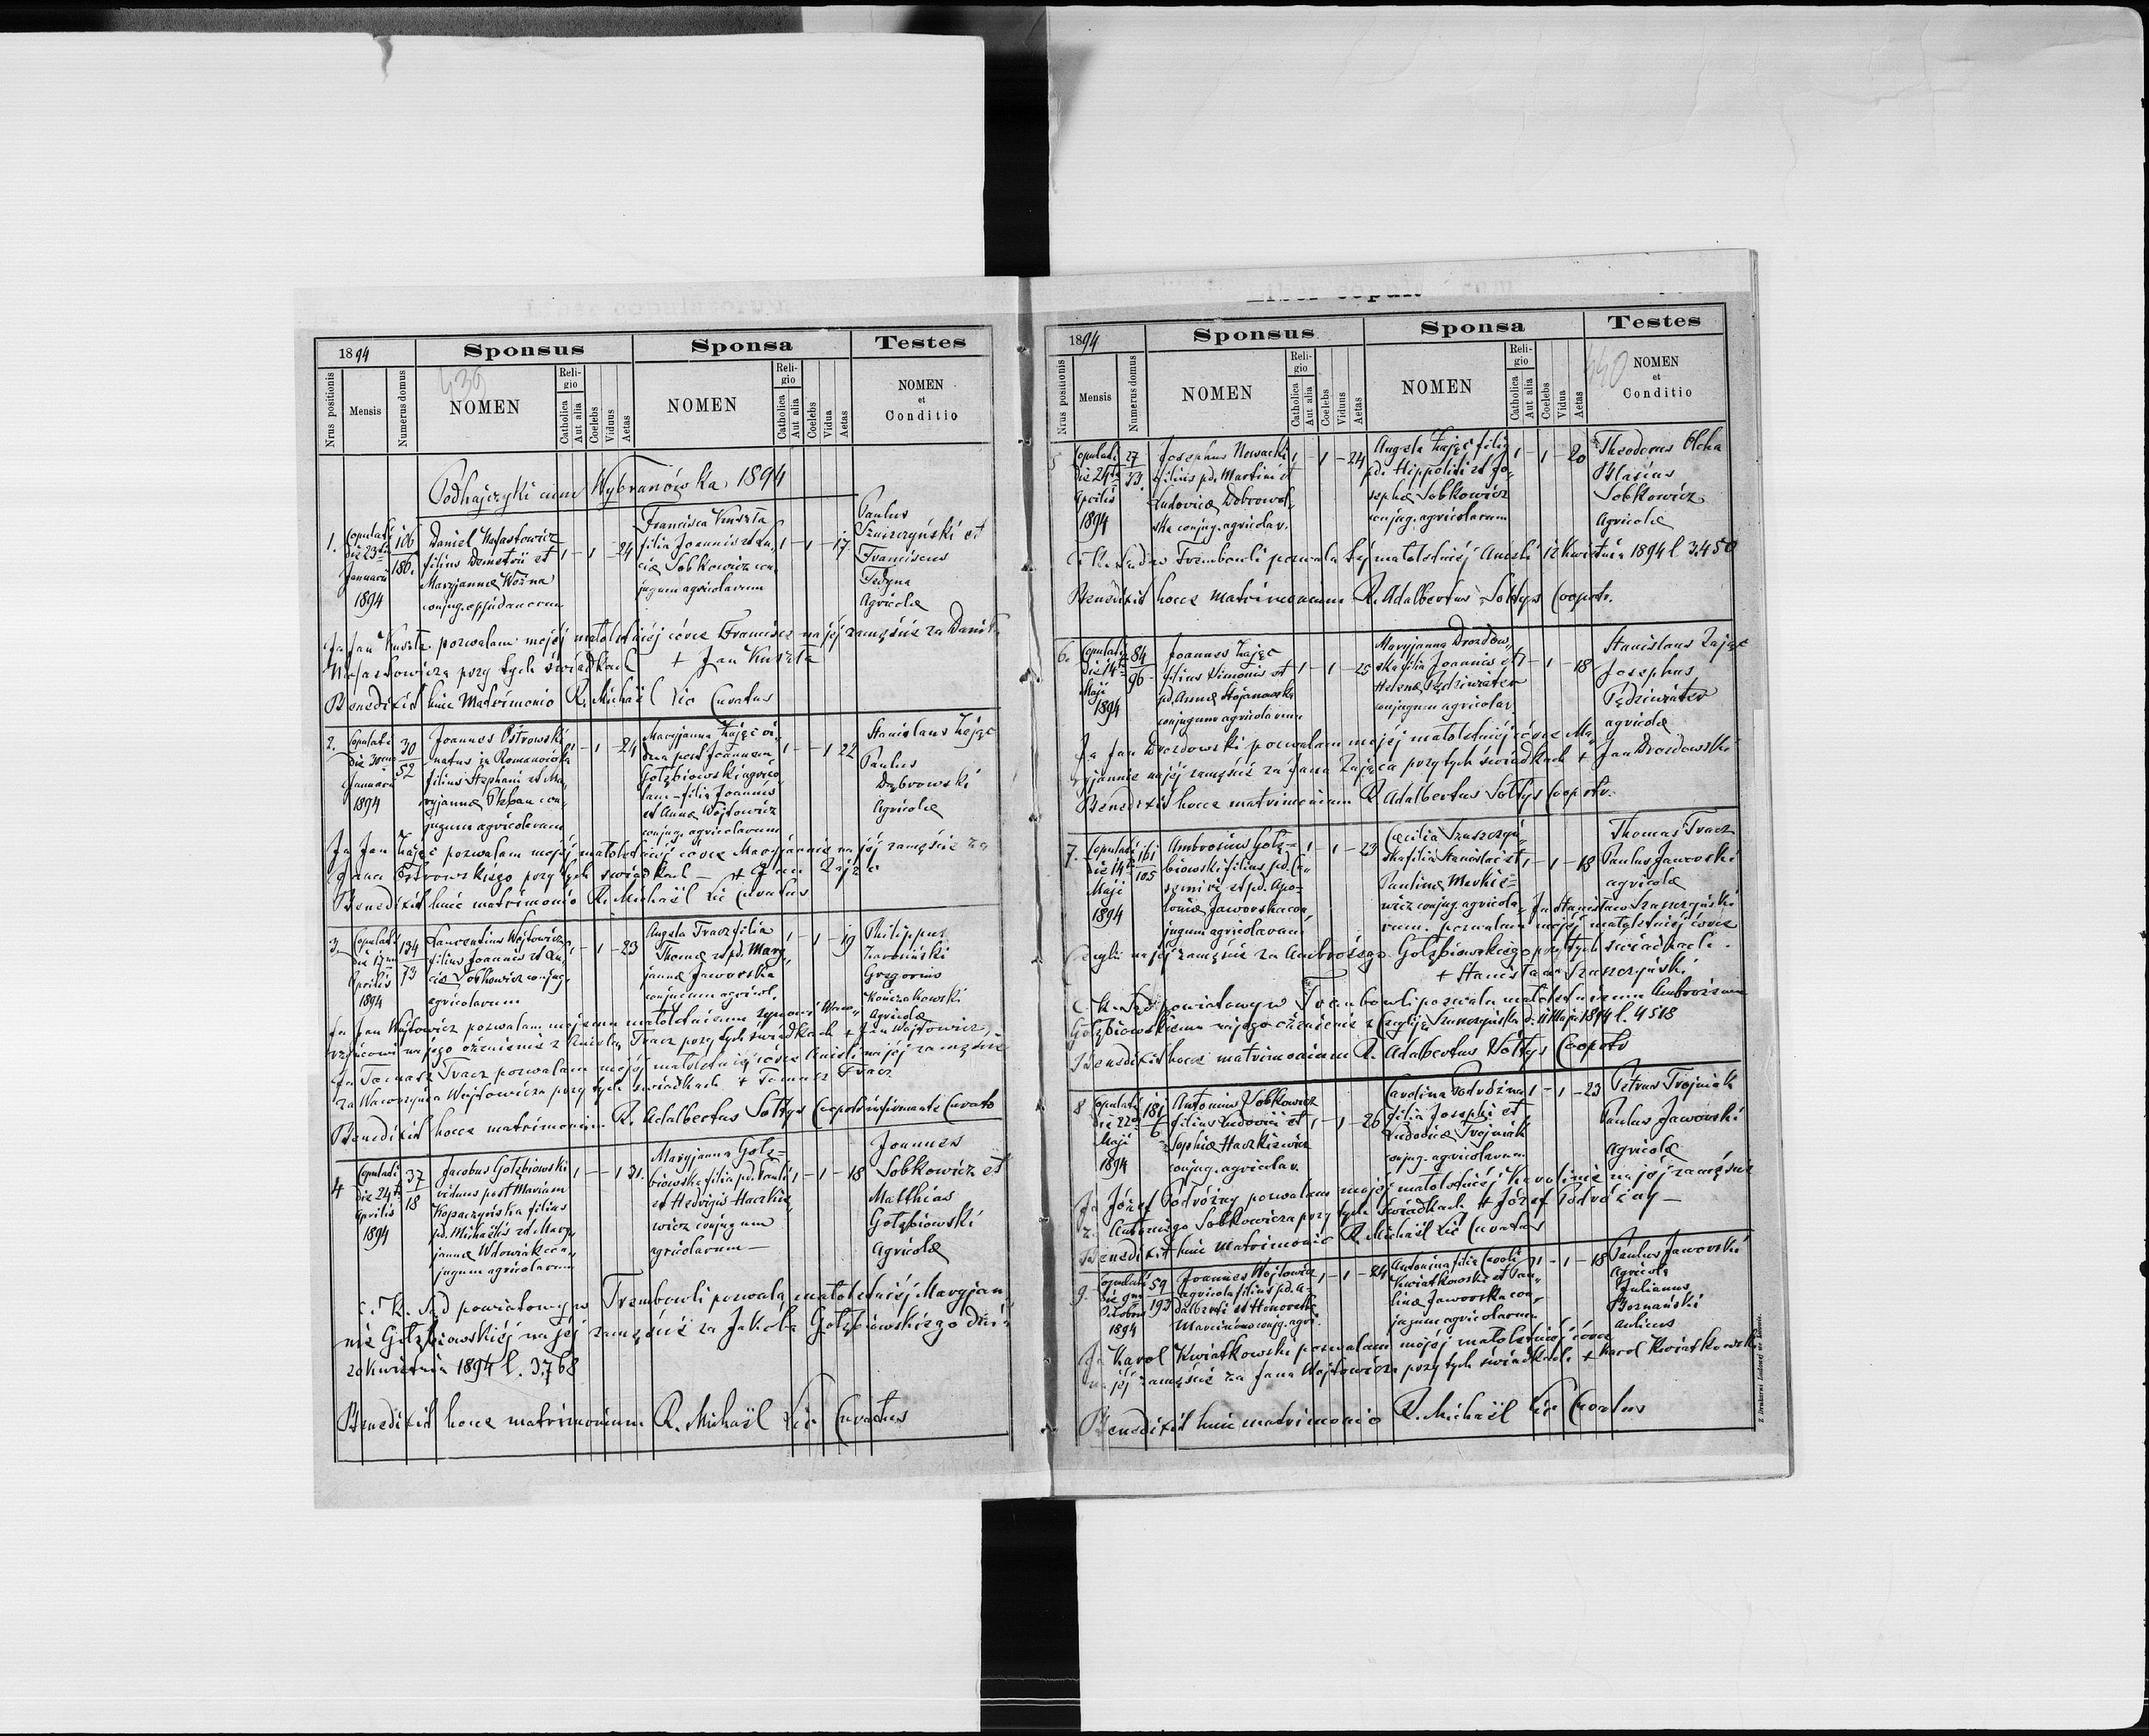 Liber copulatorum
1894
Sponsus
Sponsa
Testes
Nrus positionis
Mensis
Numerus domus
NOMEN
Religio
Catholica
Aut alia
Coelebs
Viduus
Aetas
NOMEN
Religio
Catholica
Aut alia
Coelebs
Vidua
Aetas
NOMEN
et
Conditio
439
Podhajczyki cum Wybranówka 1894
1.
Copulati
die 23tia
Januarii
1894
106
186.
Daniel
filius Demetrii et
Maryjannæ Woźna
conjug. oppidanorum
1 - 1 - 24
Francisca Kuszta
filia Joannis et Lu,
ciæ Sobkowicz con,
jugum agricolarum
1 - 1 - 17
Paulus
et
Franciscus
Fedyna
Agricolæ
Ja Jan Kuszta pozwalam mojéj małoletniéj córce Francisce na jéj zamęście za Danie
przy tych świadkach + Jan Kuszta
Benedixit huic Matrimonio R. Michaël Lic Curatus
2.
Copulati
die 30ma
Januarii
1894
30
52
Joannes Ostrowski
natus in Romanówka
filius Stephani et Ma,
ryjannæ Pleban con,
jugum agricolarum
1 - 1 - 24
Maryjanna Zając vi,
dua post Joannem
Gołębiowski agrico,
lam - filia Joannis
et Annæ Wójtowicz
conjug. agricolarum
1 - - 1 22
Stanislaus Zając
Paulus
Dąbrowski
Agricolæ
Ja Jan Zając pozwalam mojéj małoletniéj córce Maryjannie na jéj zamęście za
Jana Ostrowskiego przy tych świadkach - + Jan Zając
Benedixit huic matrimonio R. Michaël Lic Curatus
3.
Copulati
die 17ma
Aprilis
1894
134
73
Laurentius Wójtowicz
filius Joannis et Lu,
ciæ Sobkowicz conjug.
agricolarum
1 - 1 - 23
Angela Tracz filia
Thomæ et pd. Mary,
jannæ Jaworska
conjugum agricol.
1 - 1 - 19
Philippus
Gregorius
Kończakowski
Agricolæ
Ja Jan Wójtowicz pozwalam mojemu małoletniemu synowi Waw,
rzyńcowi na jego ożenienie z Anielą Tracz przy tych świadkach + Jan Wójtowicz
Ja Tomasz Tracz pozwalam mojéj małoletniéj córce Anieli na jéj zamęście
za Wawrzyńca Wójtowicza przy tych świadkach + Tomasz Tracz
Benedixit hocce matrimonium R. Adalbertus Sołtys Cooptr infirmante Curato
4
Copulati
die 24ta
Aprilis
1894
37
18
Jacobus Gołębiowski
viduus post Mariam
Kopaczyńska filius
pd. Michaëlis et Mary,
jannæ Wdowiak con,
jugum agricolarum
1 - - 1 31.
Maryjanna Gołę=
biowska filia pd. Pauli
et Hedvigis Haczkie,
wicz conjugum
agricolarum -
1 - 1 - 18
Joannes
Sobkowicz et
Matthias
Gołębiowski
Agricolæ
c. k. Sąd powiatowy w Trembowli pozwala małoletniéj Maryjan,
nie Gołębiowskiéj na jéj zamęście za Jakóba Gołębiowskiego dnia
20 Kwietnia 1894 l. 3768
Benedixit hocce matrimonium R. Michaël Lic Curatus
1894
Sponsus
Sponsa
Testes
Nrus positionis
Mensis
Numerus domus
NOMEN
Religio
Catholica
Aut alia
Coelebs
Viduus
Aetas
NOMEN
Religio
Catholica
Aut alia
Coelebs
Vidua
Aetas
440
NOMEN
et
Conditio
5
Copulati
die 24ta
Aprilis
1894
27
33.
Josephus Nowacki
filius pd. Martini et
Ludovicæ Dobrowol,
ska conjug. agricolar.
1 - 1 - 24
Angela Zając filia
pd. Hippoliti et Jo,
sephæ Sobkowicz
conjug. agricolarum
1 - 1 - 20
Theodorus Olcha
Blasius
Sobkowicz
Agricolæ
C. K. Sąd w Trembowli pozwala téj małoletniéj Anieli 12 Kwietnia 1894 l. 3450
Benedixit hocce matrimonium R. Adalbertus Sołtys Cooptr.
6.
Copulati
die 14ta
Maji
1894
84
96
Joannes Zając
filius Simonis et
pd. Annæ Stojanowska
conjugum agricolarum
1 - 1 - 25
Maryjanna Drozdow,
ska filia Joannis et
Helenæ Pędziwiater
conjugum agricolar.
1 - 1 - 18
Stanislaus Zając
Josephus
Pędziwiater
agricolæ
Ja Jan Drozdowski pozwalam mojéj małoletniéj córce Ma,
ryjannie na jéj zamęście za Jana Zająca przy tych świadkach + Jan Drozdowski
Benedixit hocce matrimonium R. Adalbertus Sołtys Cooptr.
7.
Copulati
die 14ta
Maji
1894
161
105
Ambrosius Gołę=
biowski filius pd. Ca,
simiri et pd. Apo=
loniæ Jaworska con,
jugum agricolarum
1 - 1 - 23
Cæcilia Szuszczyń,
ska filia Stanislai et
Paulinæ Markie=
wicz conjug. agricola,
rum.
1 - 1 - 18
Thomas Tracz
Paulus Jaworski
agricolæ
Ja Stanisław Szuszczyński
pozwalam mojéj małoletniéj córce
Cecylii na jéj zamęście za Ambrożego Gołębiowskiego przy tych świadkach.
+ Stanisław Szuszczyński
c. K. Sąd powiatowy w Trembowli pozwala małoletniemu Ambrożemu
Gołębiowskiemu na jego ożenienie z Cecyliją Szuszczyńską d. 11 Maja 1894 l. 4518
Benedixit hocce matrimonium R. Adalbertus Sołtys Cooptr
8
Copulati
die 22da
Maji
1894
181
6
Antonius Sobkowicz
filius Ludovici et
Sophiæ Haczkiewicz
conjug. agricolar.
1 - 1 - 26
Carolina Podróżna
filia Josephi et
Ludovicæ Trojniak
conjug. agricolarum
1 - 1 - 23
Petrus Trojniak
Paulus Jaworski
Agricolæ
Ja Józef Podróżny pozwalam mojéj małoletniéj Karolinie na jéj zamęście
z Antoniego Sobkowicza przy tych świadkach + Józef Podróżny -
Benedixit huic Matrimonio R. Michaël Lic Curatus
9.
Copulati
die 9na
Octobris
1894
59
193
Joannes Wójtowicz
agricola filius pd. A=
dalberti et Honoratæ
conjug. agri.
1 - 1 - 24
Antonina filia Caroli
Kwiatkowski et Pau,
linæ Jaworska con,
jugum agricolarum
1 - 1 - 18
Paulus Jaworski
Agricola
Julianus
Poznański
Ja Karol Kwiatkowski pozwalam mojéj małoletniéj córce
na jéj zamęście za Jana Wójtowicza przy tych świadkach + Karol Kwiatkowski
Benedixit huic matrimonio R. Michaël Lic Curatus
Z Drukarni Ludowej we Lwowie.